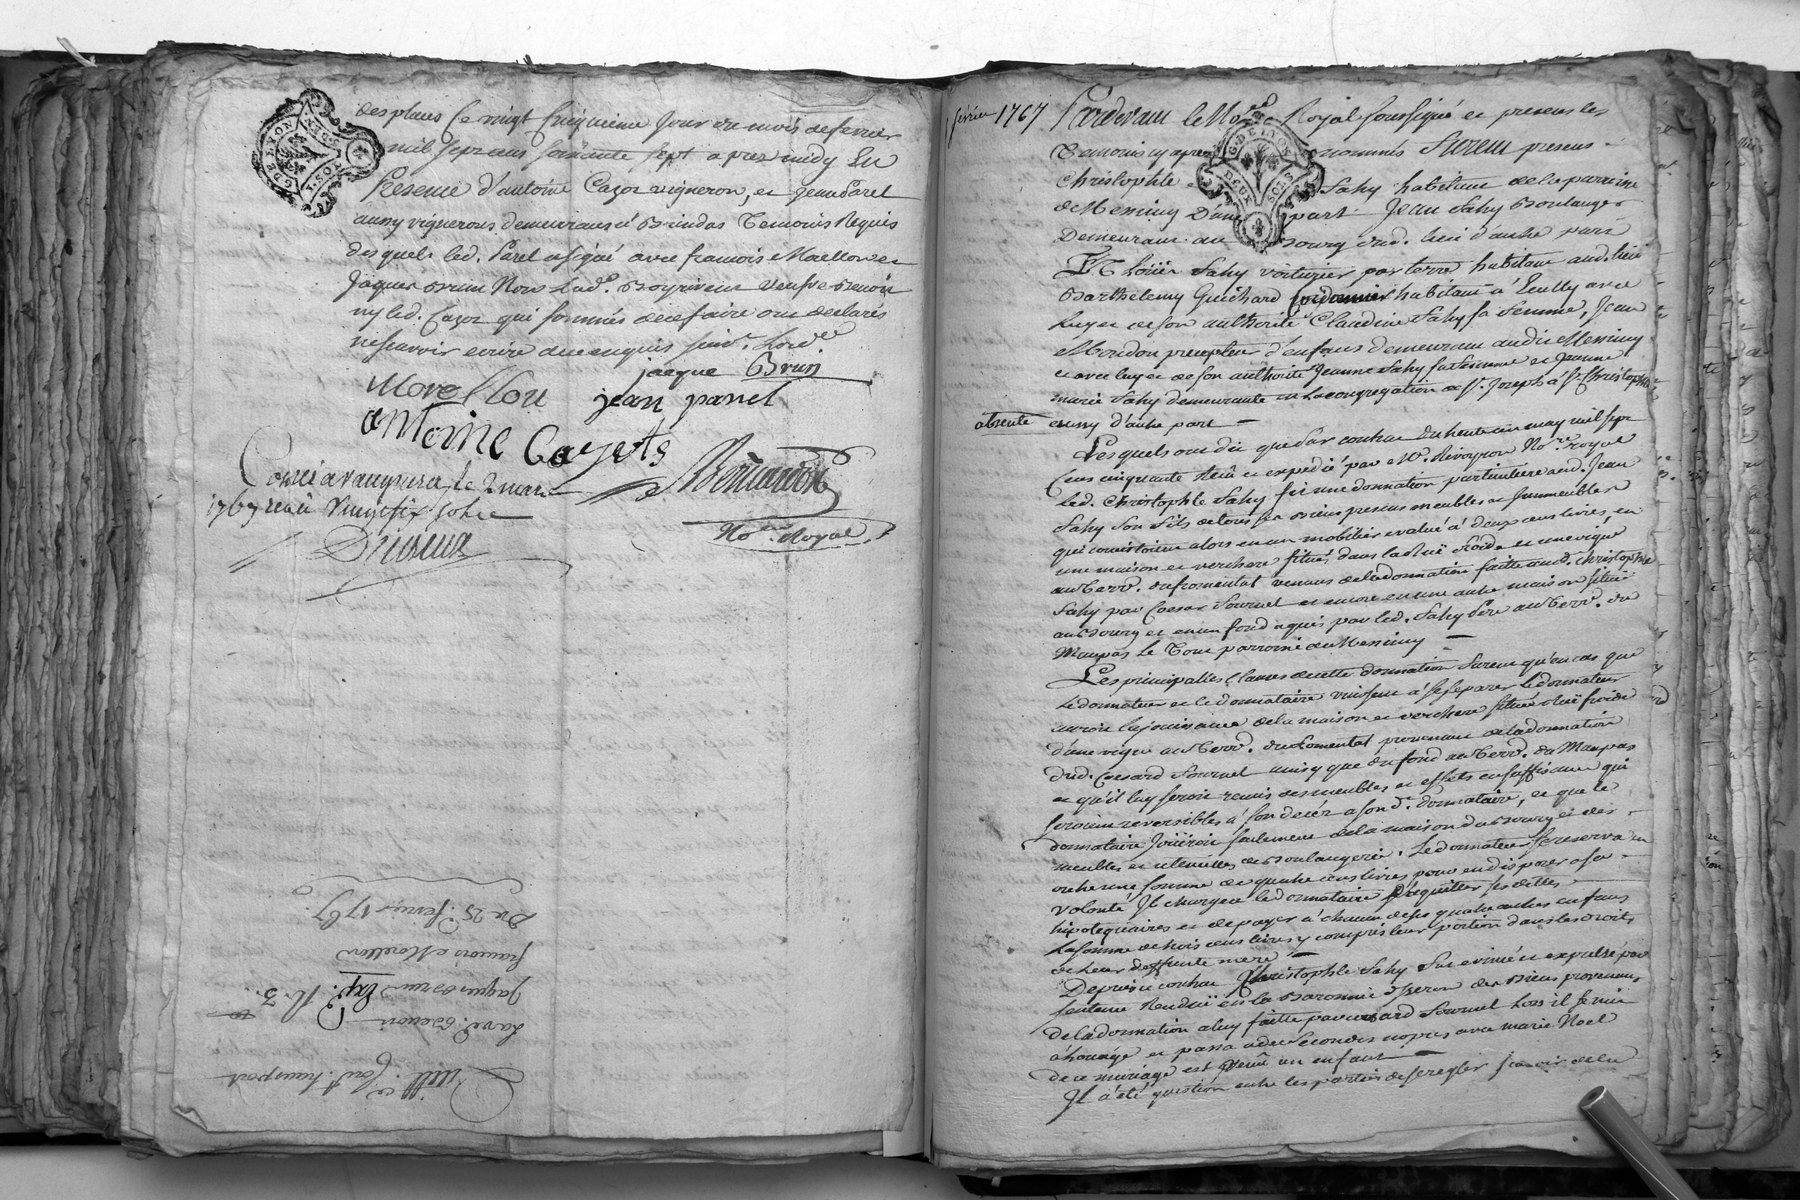 des plans Ce vingt Cinquieme Jour du mois de fevrier
mil sept cens soixante sept apres midy En
Presence d'antoine Cazot vigneron, et Jean Paret
aussy vigneron demeurans à Brindas Temoins Requis
desquels led. Paret a signé avec francois Morellon et
Jaques Brun Non Lad.
ny led. Cazot qui sommés de ce faire ont declarés
ne scavoir ecrire de ce enquis suiv. Lord.ce
jacque Brun
Morellon jean parret
antoine
Controlé a vaugneray le 2 mars
1767 recu vingt six sols
No.re Royal
G DE LYON
DEUX SOLS
Quitt.ce
La ve. Benoit
Jaques Brun Exp. R. 3.
francois Morellon
Du 25 fevrier 1767
fevrier 1767
Pardevant le No.re Royal soussigné et presens les
Temoins cy apres nommés furent presens
Christophle Fahy habitant de la paroisse
de Messimy D'une part. Jean Fahy Boulanger
Demeurant au Bourg dud. lieu d'autre part
Et Fahy voiturier par terre habitant aud. lieu
Barthelemy Guichard Cordonnier habitant à avec
luy et de son authorité Claudine Fahy sa femme, Jean
Mondon precepteur d'enfans demeurant aud. Messimy
et avec luy et de son authorité Jeanne Fahy sa femme et Jeanne
marie Fahy demeurante en la congregation de St. Joseph à St. Christophle
absente
aussy d'autre part
Lesquels ont dit que par contrat du trente un may mil sept
Cens cinquante reçû et expedié par Me. No.re Royal
led. Christophle Fahy fit une donnation particuliere aud. Jean
Fahy son fils de tous ses Biens presens meubles et Immeubles
qui consistoient alors en un mobilier evalué à deux cens livres, en
une maison et verchere situés dans la Ruë froide et une vigne
au Terr. du fromental venans de la donnation faitte aud. Christophle
Fahy par Cesar Fournel et encore en une autre maison située
au Bourg et en un fond aquis par led. Fahy Pere au Terr. du
Maupas le Tout parroisse de Messimy
Les principalles Clauses de cette donnation furent qu'en cas que
le donnateur et le donnataire vinssent à se separer le donnateur
auroit la jouissance de la maison et verchere située Ruë froide
d'une vigne au Terr. du fromental provenant de la donnation
dud. Cesard Fournel ainsy que du fond au Terr. du Maupas
et qu'il luy seroit remis des meubles et effets en suffisance qui
seroient reversibles à son decés a son d. donnataire, et que le
donnataire Joüiroit seulement de la maison du Bourg et des
meubles et utencilles de Boulangerie. Le donnateur se reserva en
outre une somme de quatre cens livres pour en disposer a sa
volonté. Il chargea le donnataire d'aquitter ses dettes
hipotequaires et de payer à chacun de ses quatre autres enfans
la somme de trois cens livres y compris leur portion dans les droits
de Leur deffunte mere
Depuis ce contrat Christophle Fahy fut evincé et expulsé par
sentence Renduë en la Baronnie d'Iseron des Biens provenans
de la donnation a luy faitte par Cesard Fournel lors il se mit
et passa a de secondes nopces avec marie Noel
de ce mariage est venû un enfant
Il a été question entre les parties de se regler